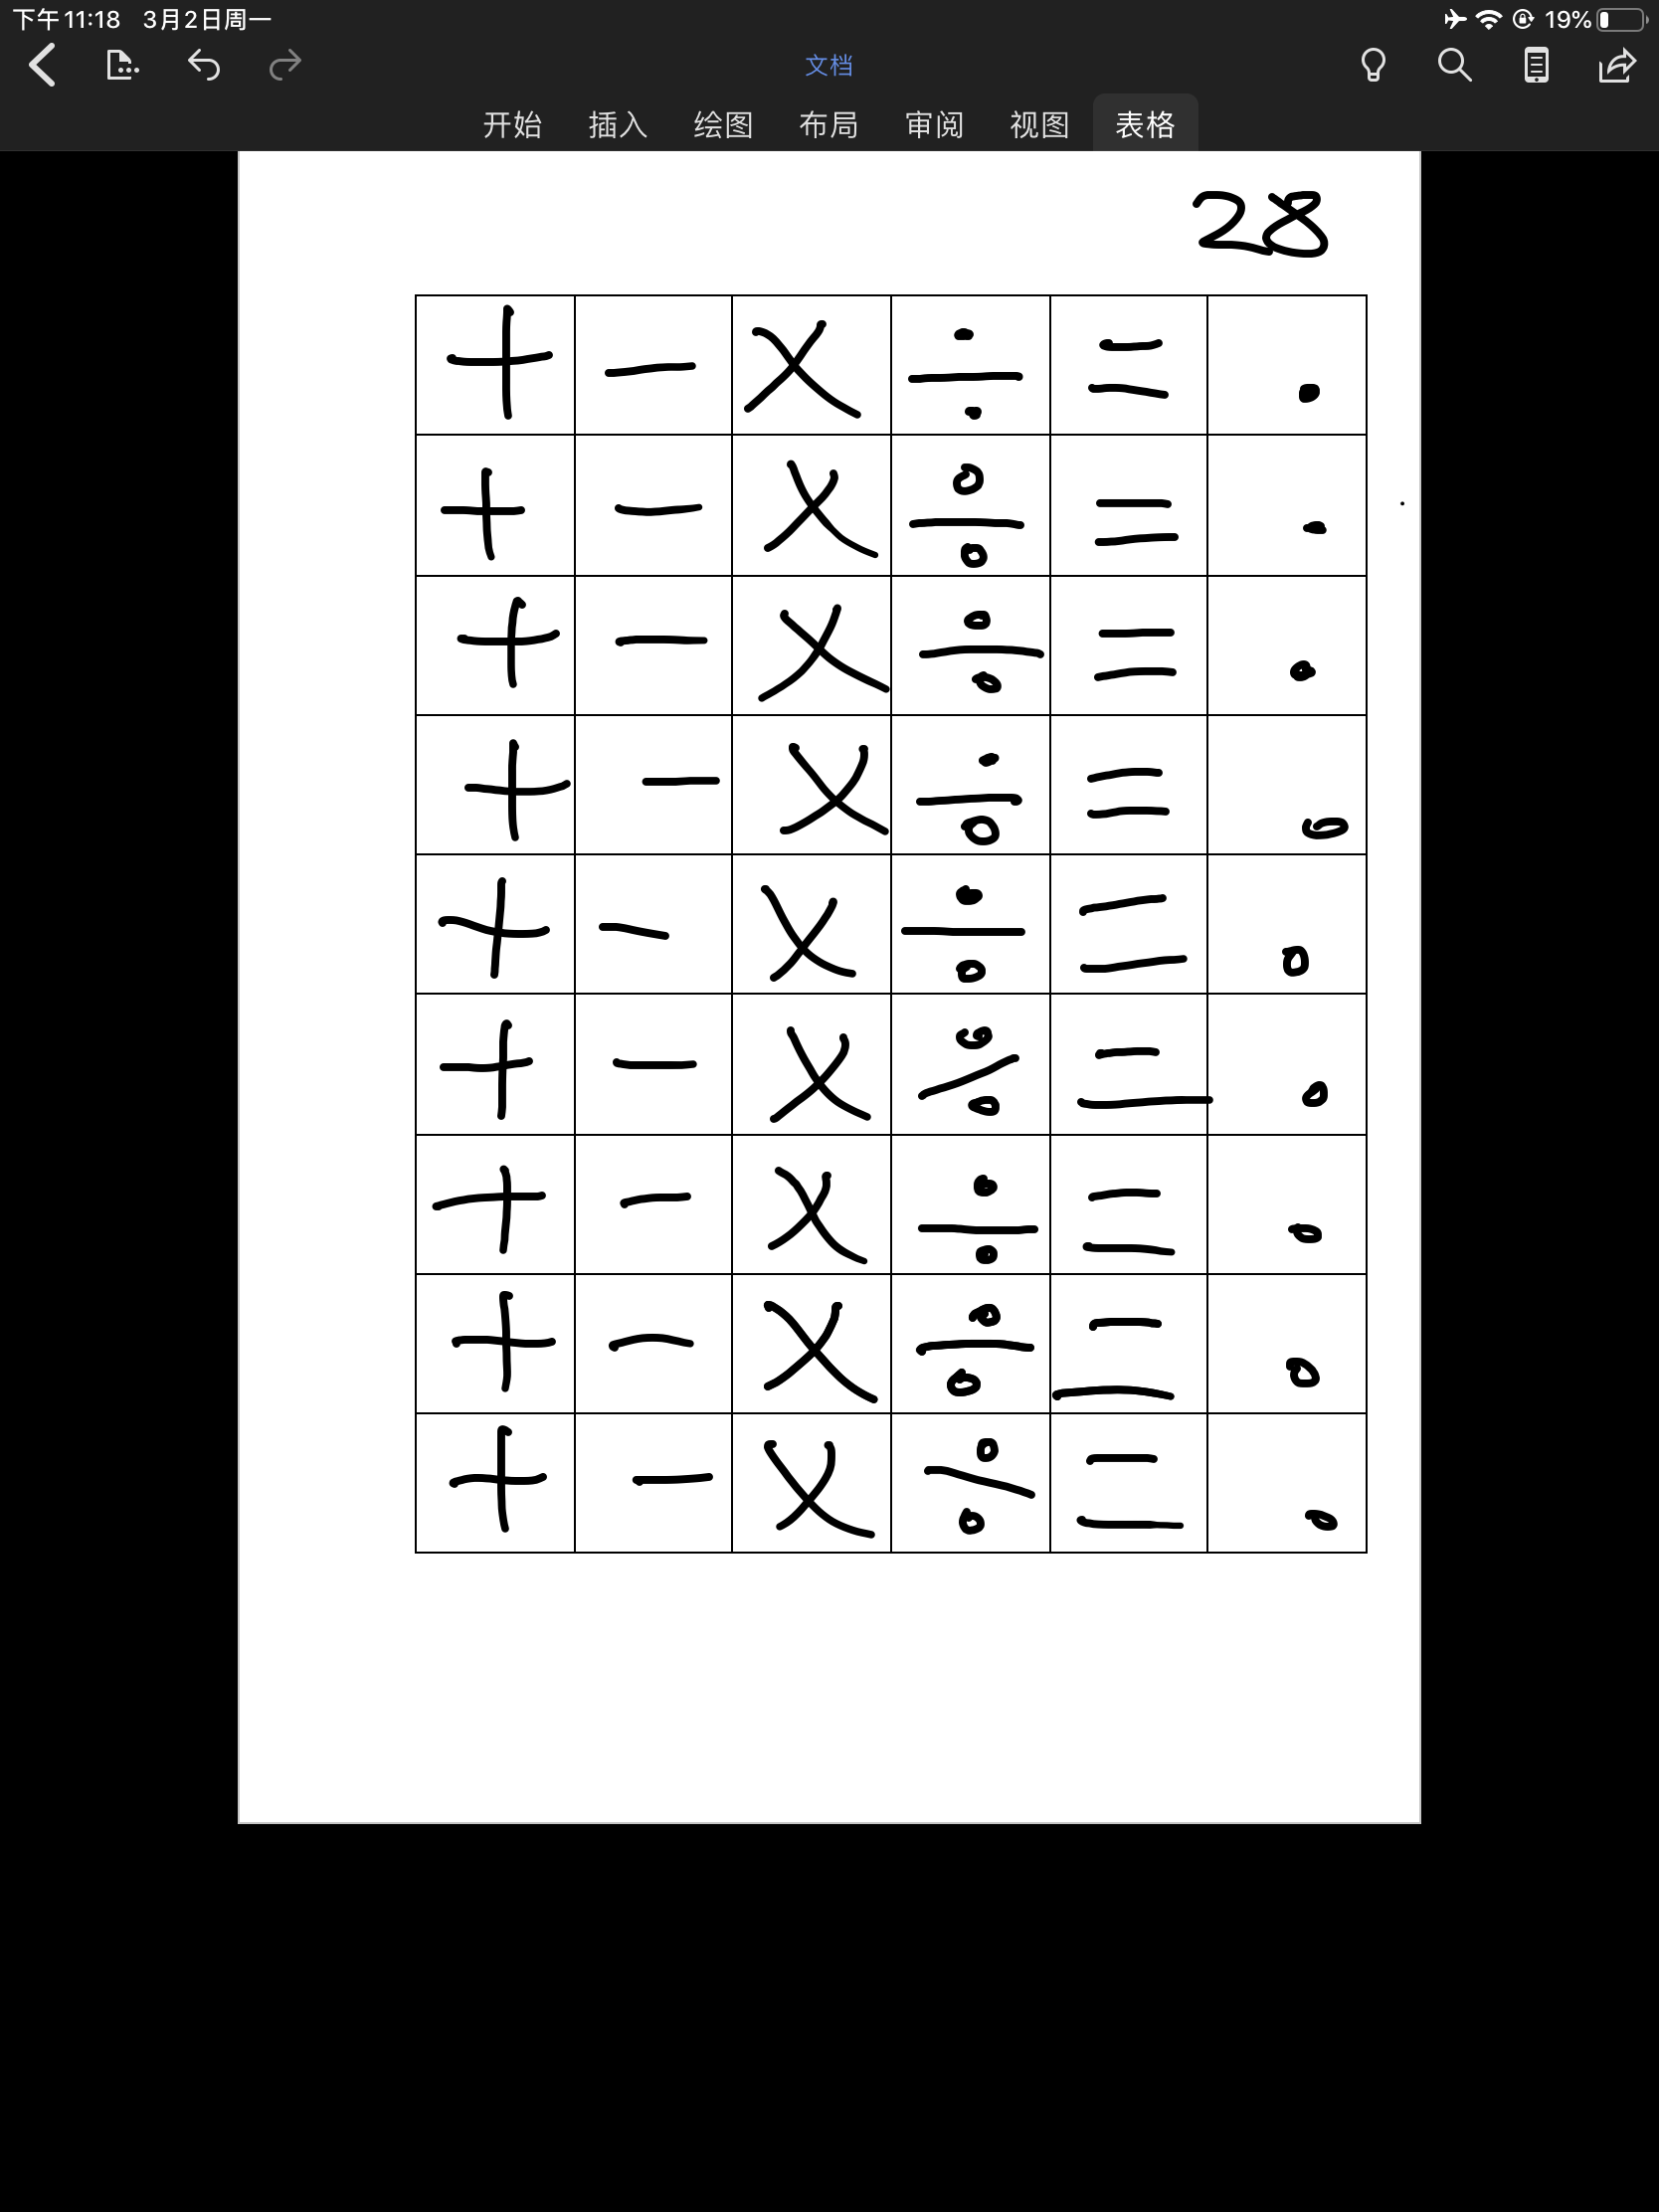 下午11:18 3月2日周一 19%
文档
开始 插入 绘图 布局 审阅 视图 表格
28
+ − × ÷ = .
+ − × ÷ = .
+ − × ÷ = .
+ − × ÷ = .
+ − × ÷ = .
+ − × ÷ = .
+ − × ÷ = .
+ − × ÷ = .
+ − × ÷ = .